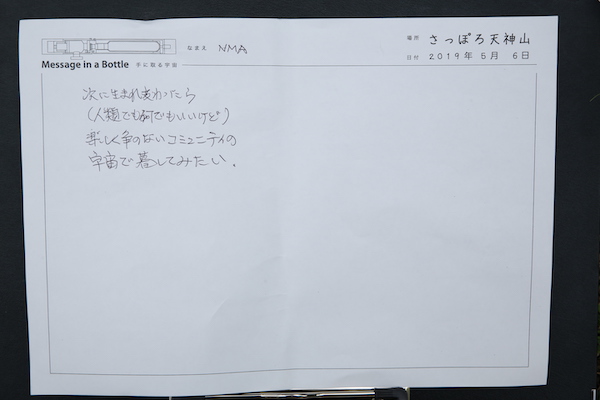 なまえ NMA
場所 さっぽろ天神山
Message in a Bottle 手に取る宇宙
日付 2019年 5月 6日
次に生まれ変わったら
(人類でも何でもいいけど)
楽しく争のないコミュニティの
宇宙で暮してみたい.